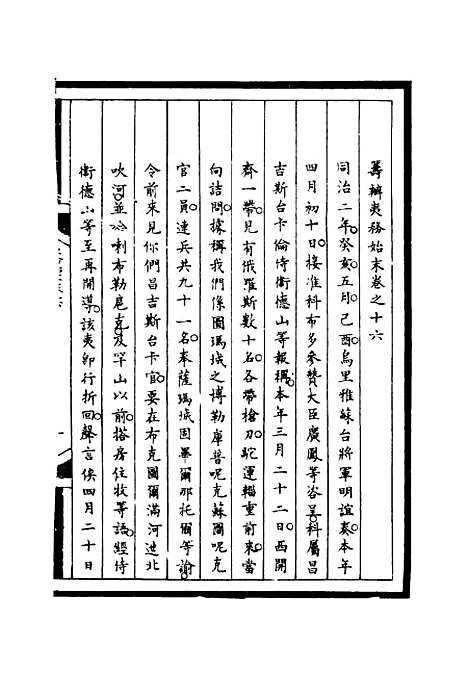 籌辦夷務始末卷之十六
同治二年。癸亥。五月。己酉。烏里雅蘇台將軍明誼奏。本年
四月初十日。接准科布多參贊大臣廣鳳等咨呈。科屬昌
吉斯台卡倫侍衛德山等報稱。本年三月二十二日。西開
齊一帶。見有俄羅斯數十名。各帶槍刀。駝運輜重前來。當
向詰問。據稱我們係圖瑪域之博勒庫普呢克蘇圖呢克
官二員。連兵共九十一名。奉薩瑪域固畢爾那托爾等諭。
令前來見你們昌吉斯台卡官。要在布克圖爾滿河迆北
吹河。並哈喇布勒扈克。及罕山以前。搭房住牧等語。經侍
衛德山等至再開導。該夷卽行折回。聲言俟四月二十日